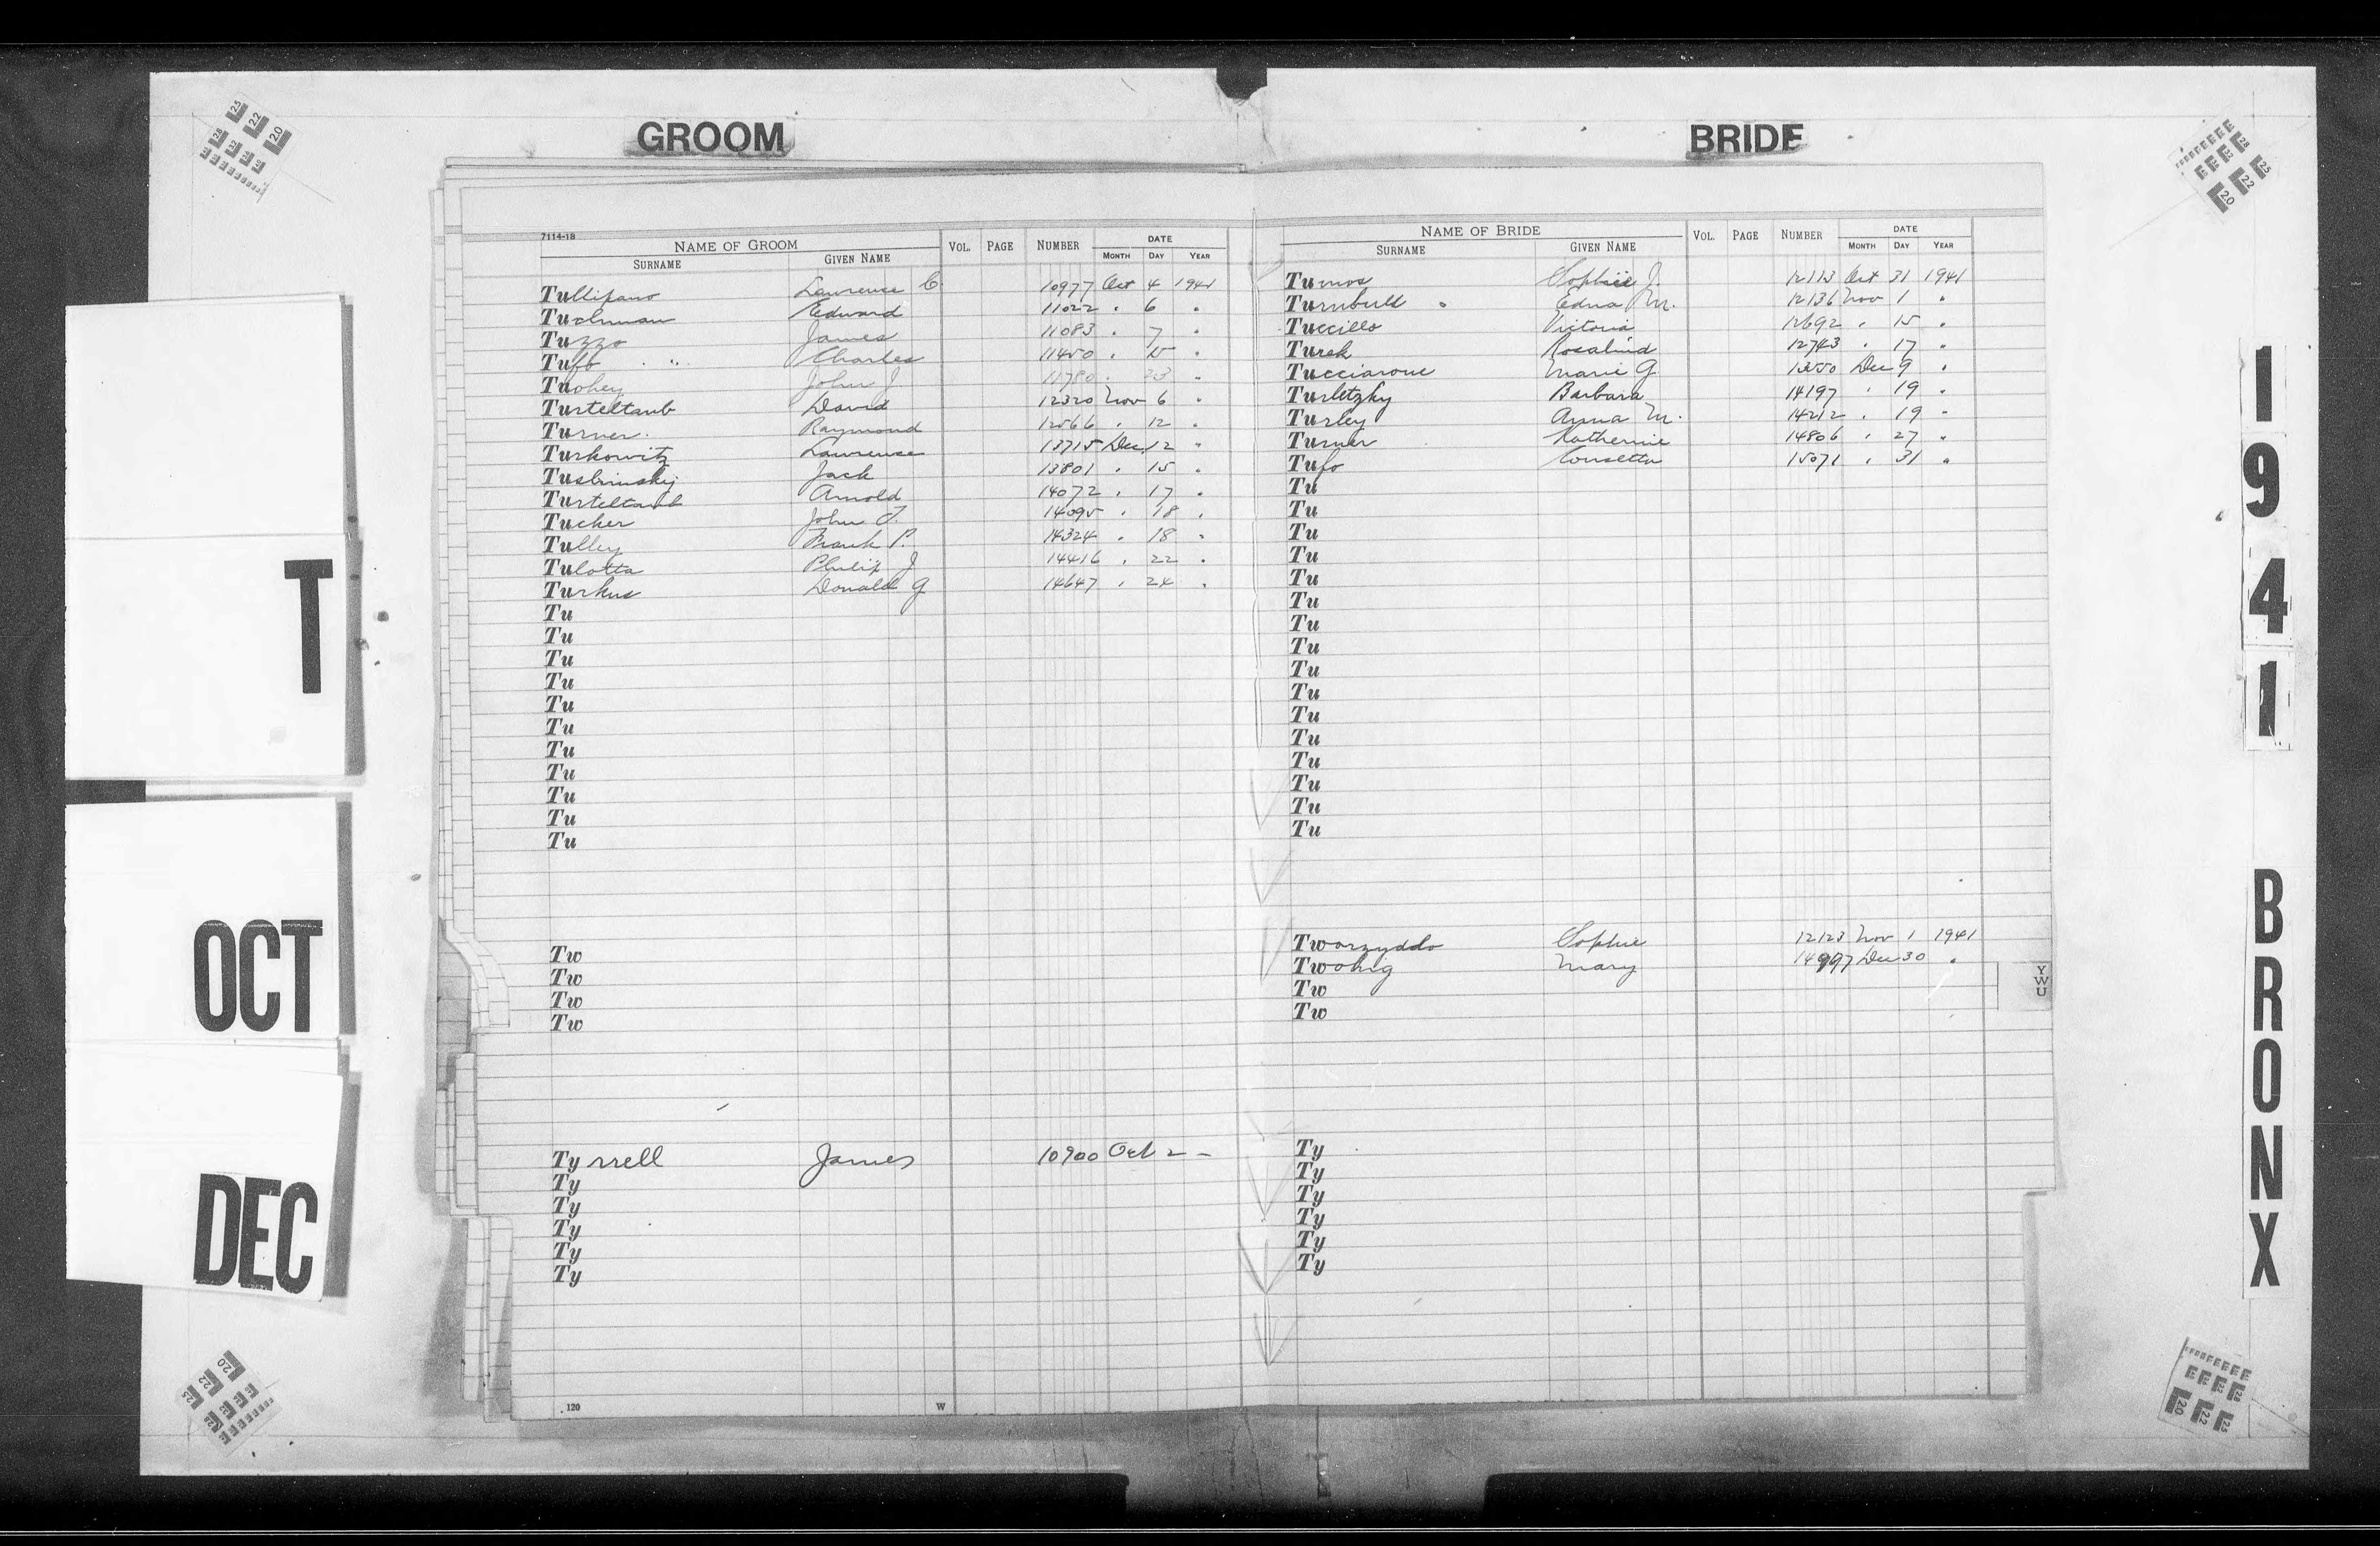 GROOM
BRIDE
7114-18
NAME OF GROOM
SURNAME
GIVEN NAME
VOL.
PAGE
NUMBER
DATE
MONTH
DAY
YEAR
Tullipano Lawrence C 10977 Oct 4 1941
Tuchman Edward 11022 . 6 .
Tuzzo James 11083 . 7 .
Tufo Charles 11450 . 15 .
Tuohey John J. 11780 . 23 .
Turteltaub David 12320 Nov 6 .
Turner Raymond 12566 . 12 .
Turkowitz Lawrence 13715 Dec 12 "
Jack 13801 . 15 .
Turteltaub Arnold 14072 . 17 .
Tucker John J. 14095 . 18 .
Tulley Frank P. 14324 . 18 .
Tulotta Philip J 14416 . 22 .
Turkus Donald G 14647 . 24 .
Tu
Tu
Tu
Tu
Tu
Tu
Tu
Tu
Tu
Tu
Tu
Tw
Tw
Tw
Tw
Tyrrell James 10900 Oct 2 –
Ty
Ty
Ty
Ty
Ty
120
W
NAME OF BRIDE
SURNAME
GIVEN NAME
VOL.
PAGE
NUMBER
DATE
MONTH
DAY
YEAR
Tumos Sophie J. 12113 Oct 31 1941
Turnbull Edna M. 12136 Nov 1 "
Tuccillo Victoria 12692 . 15 "
Turek Rosalind 12743 . 17 "
Tucciarone Marie G. Dec 9 .
Turletzky Barbara 14197 . 19 .
Turley Anna M. 14212 . 19 "
Turner Katherine 14806 . 27 "
Tufo Consetta 15071 . 31 "
Tu
Tu
Tu
Tu
Tu
Tu
Tu
Tu
Tu
Tu
Tu
Tu
Tu
Tu
Tu
Tu
Tworzyddo Sophie 12123 Nov 1 1941
Twohig Mary 14997 Dec 30 .
Tw
Tw
YWU
Ty
Ty
Ty
Ty
Ty
Ty
T
OCT
DEC
1941
BRONX